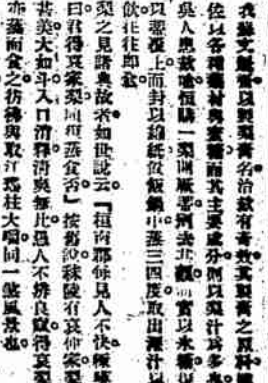 我蘇文魁齋以製梨膏名治欬有奇效其製膏之原料雖
佐以各種藥材與蜜糖而其主要成分則以梨汁爲多也
吳人患欬嗆恆購一梨削去其而實以冰糖復
以蓋覆上而封以綿紙飯鍋中蒸三四度取出瀝汁以
飲往往卽愈
梨之見諸典故者如世說云『桓南郡每見人不快輒嗔
曰君得哀家梨同復蒸食否』按舊說秣陵有哀仲家梨
甚美大如斗入口消釋淸爽無比愚人不辨良得哀梨
亦蒸而食之彷彿與取江瑤柱大嚼同一煞風景也